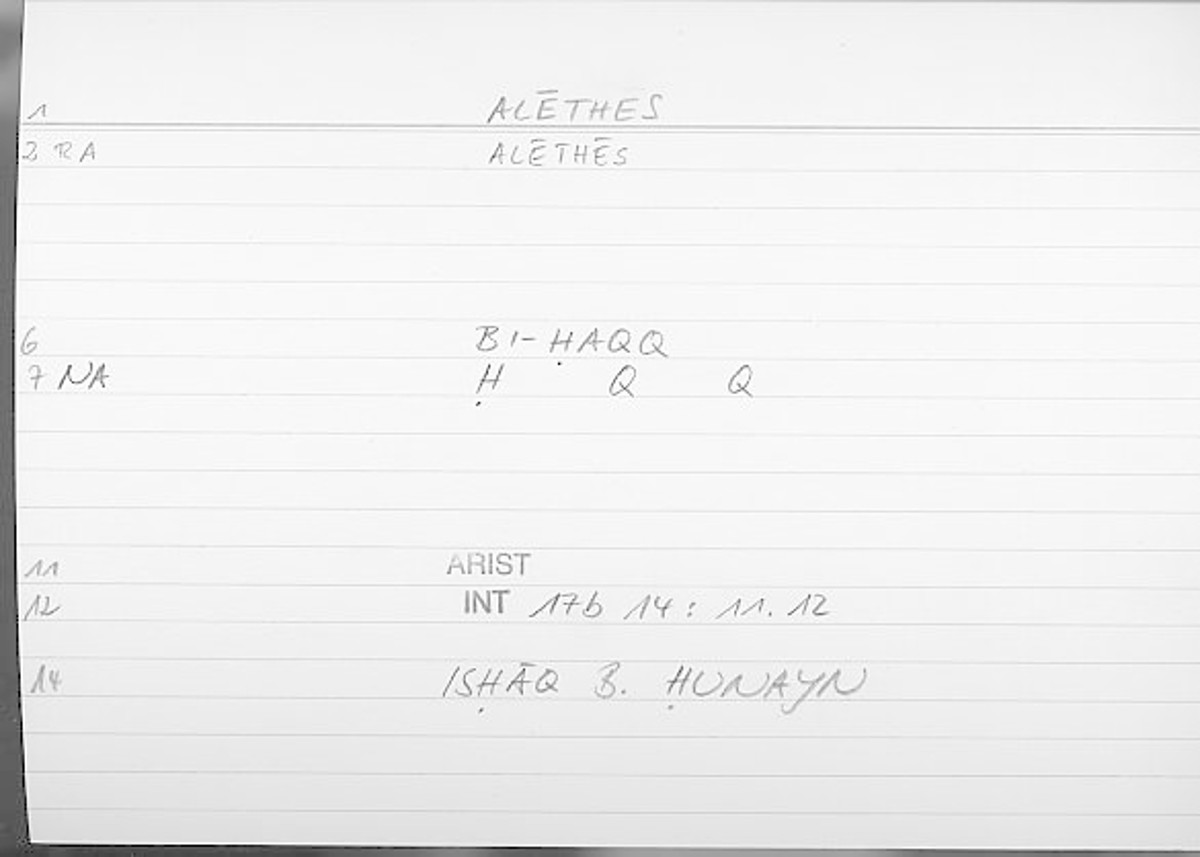 1 ALĒTHES
2 RA ALĒTHĒS
6 BI-ḤAQQ
7 NA Ḥ Q Q
11 ARIST
12 INT 17b 14 : 11. 12
14 ISḤĀQ B. ḤUNAYN